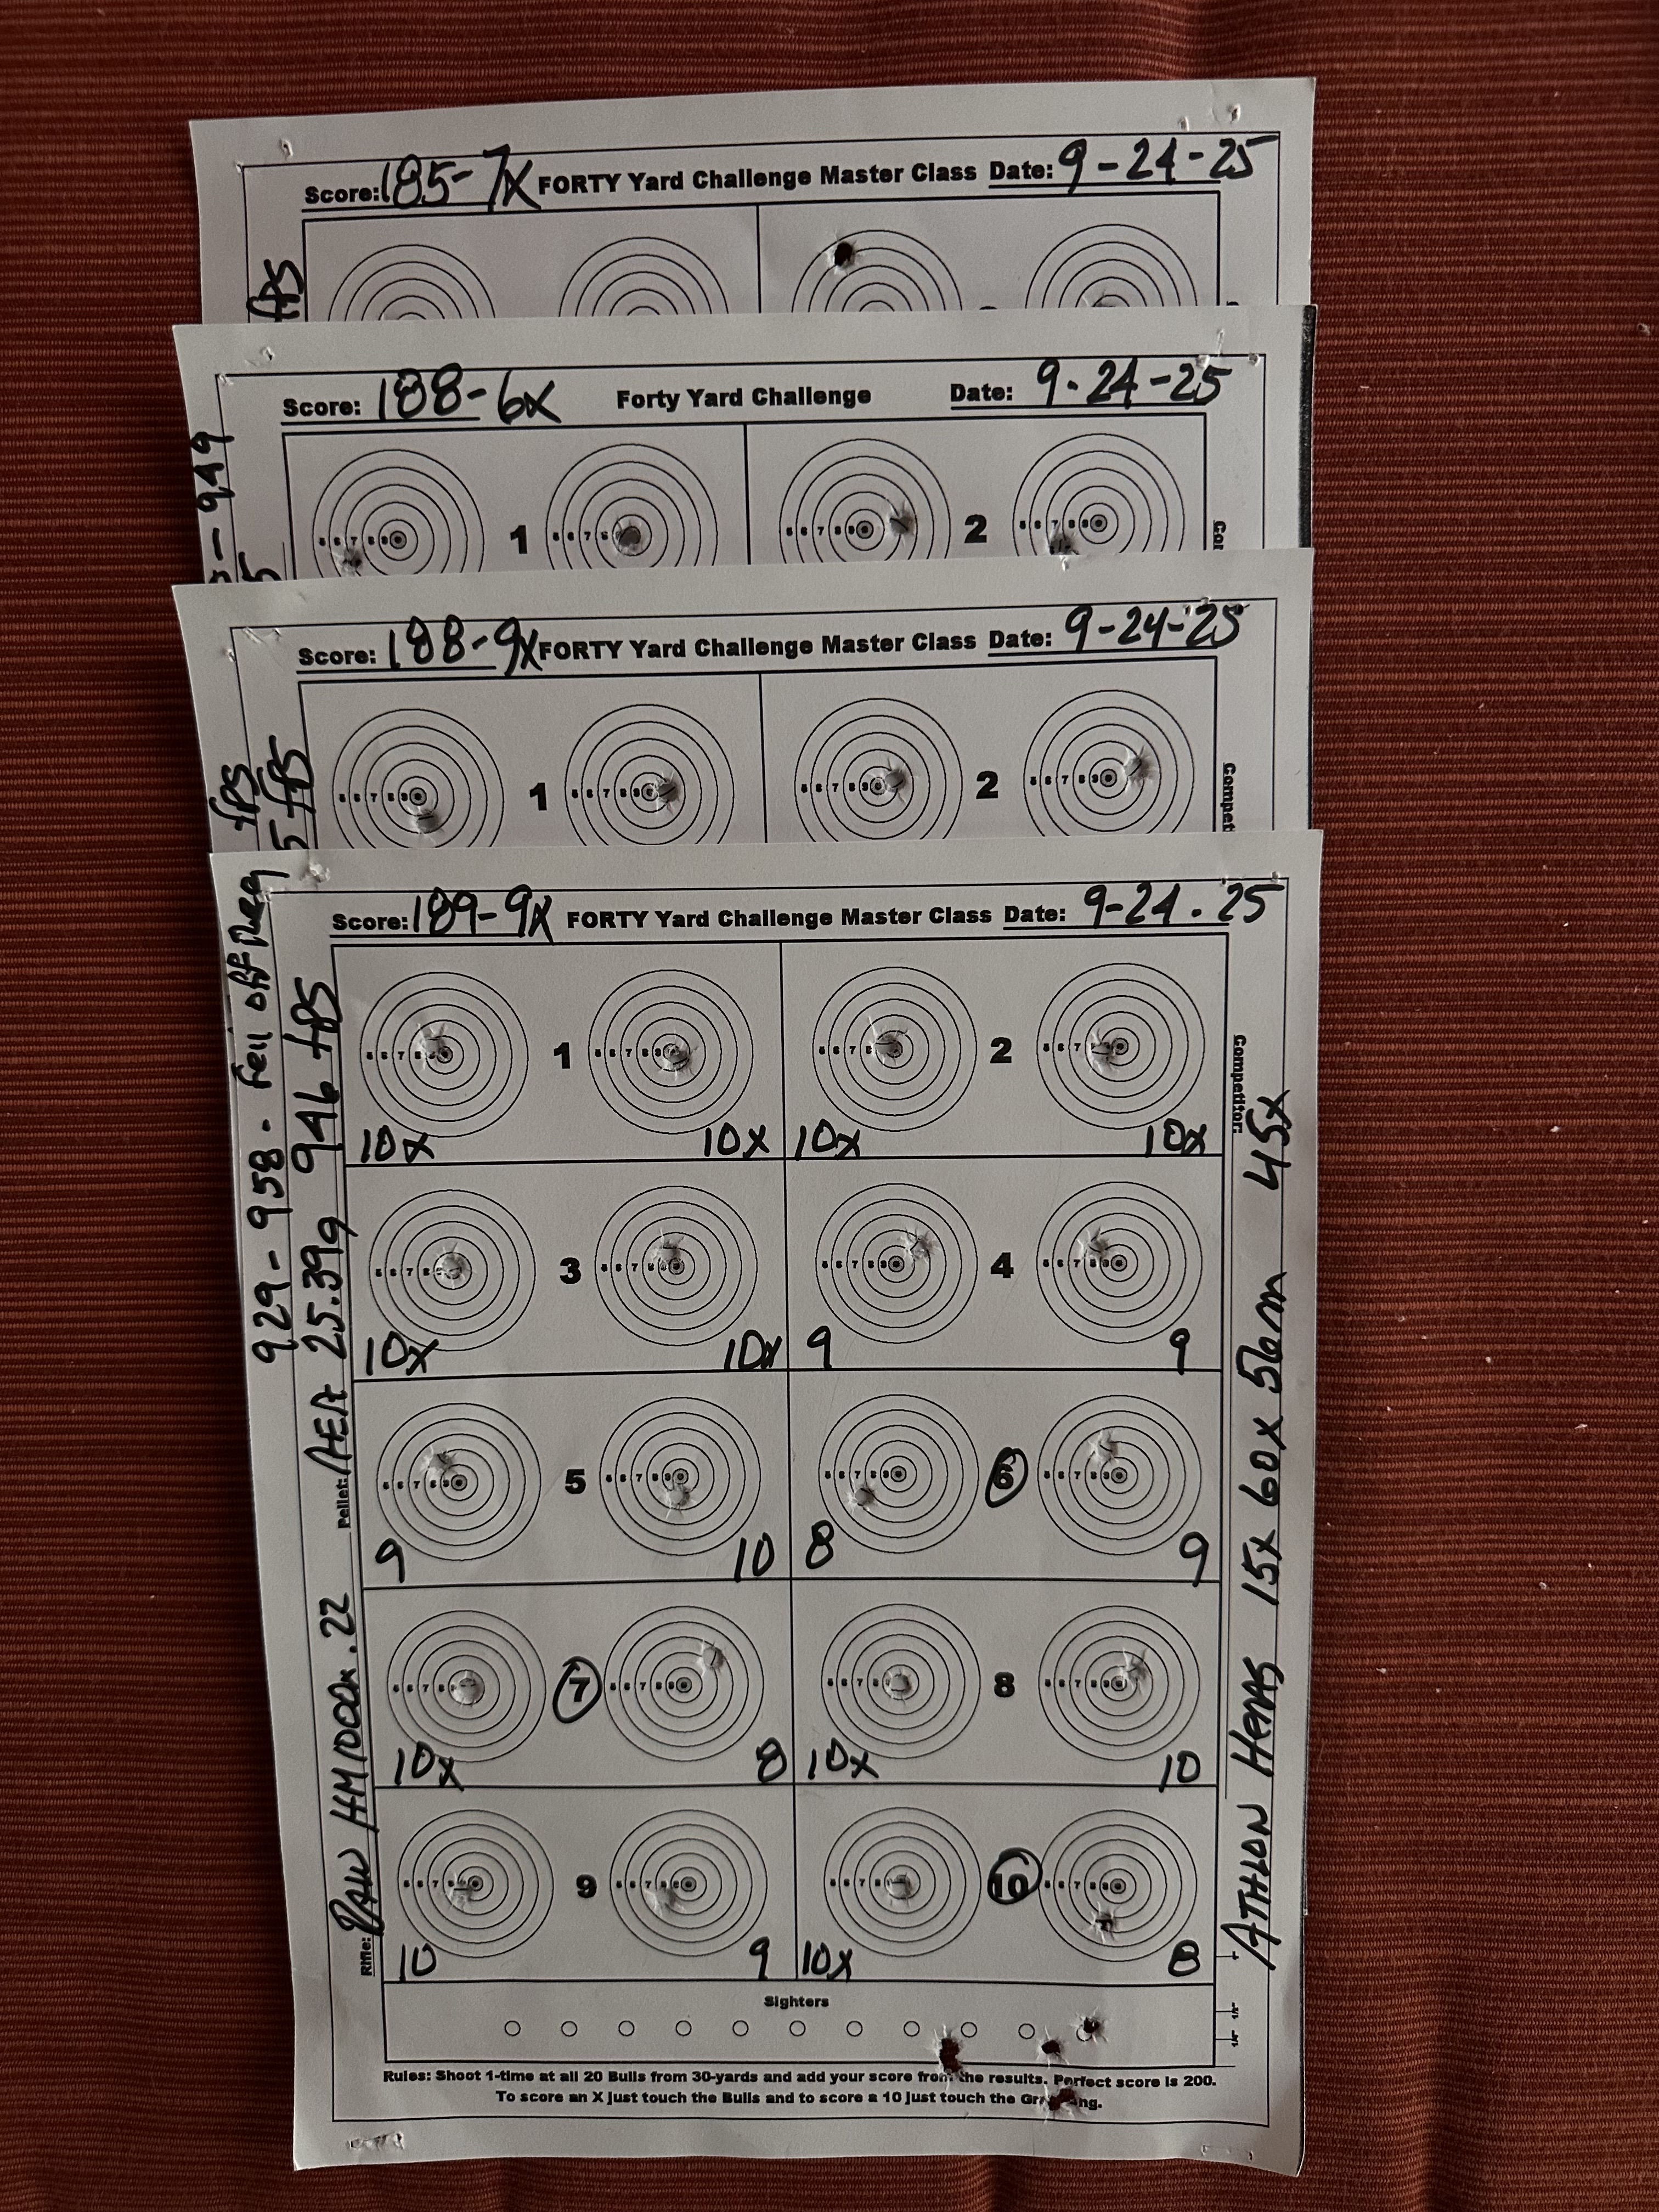 Score: 185-7X FORTY Yard Challenge Master Class Date: 9-24-25
fps
Score: 188-6X Forty Yard Challenge Date: 9-24-25
1 2
- 949
Score: 188-9X FORTY Yard Challenge Master Class Date: 9-24-25
1 2
Compet
fps
5 fps
Score: 189-9X FORTY Yard Challenge Master Class Date: 9-24-25
1 2
10X 10X 10X 10X
3 4
10X 10X 9 9
5 6
9 10 8 9
7 8
10X 8 10X 10
9 10
10 9 10X 8
Sighters
Rules: Shoot 1-time at all 20 Bulls from 30-yards and add your score from the results. Perfect score is 200.
To score an X just touch the Bulls and to score a 10 just touch the
929-958 - Fell off Reg
Rifle: RAW HM1000x .22 Pellet: AEA 25.39g 946 fps
Competitor:
ATHLON Heras 15x 60x 56m 45x
1/4" 1/2"